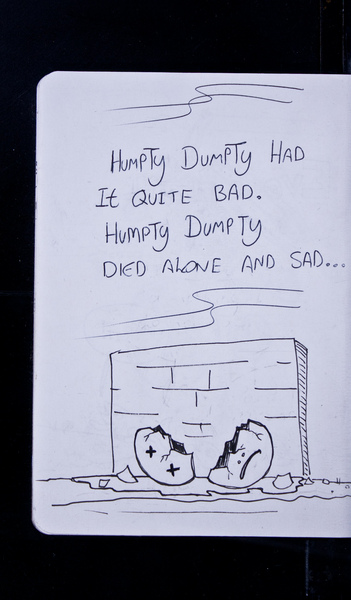 Humpty Dumpty Had
It Quite Bad.
Humpty Dumpty
Died Alone and Sad...